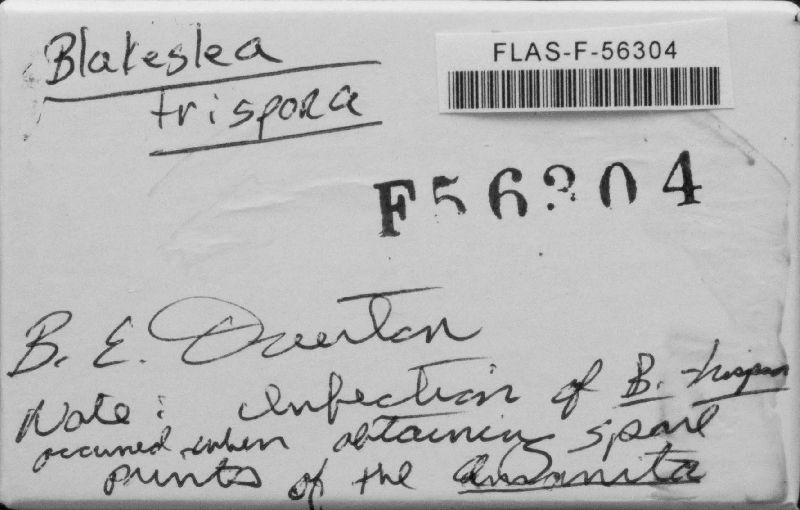 Blakeslea
trispora
FLAS-F-56304
F56304
B. E. Overton
Note: Infection of B. trispora
occurred when obtaining spore
prints of the Amanita